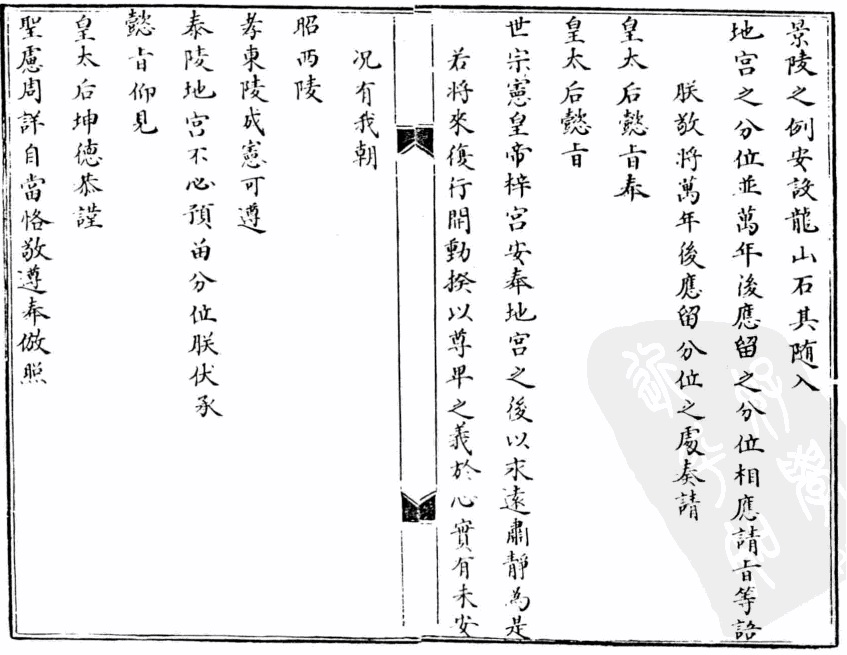 景陵之例安設龍山石其随入
地宫之分位並萬年後應留之分位相應請旨等語
朕敬將萬年後應留分位之處奏請
皇太后懿旨奉
皇太后懿旨
世宗憲皇帝梓宫安奉地宫之後以求遠肅靜為是
若將來復行開動揆以尊卑之義於心實有未安
况有我朝
昭西陵
孝東陵成憲可遵
泰陵地宫不必預留分位朕伏承
懿旨仰見
皇太后坤德恭謹
聖慮周詳自當恪敬遵奉倣照